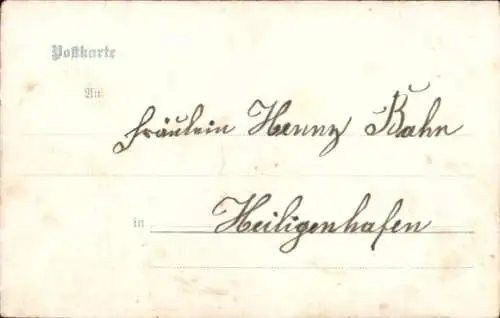 Postkarte
An
Fräulein Henny Bahn
in Heiligenhafen